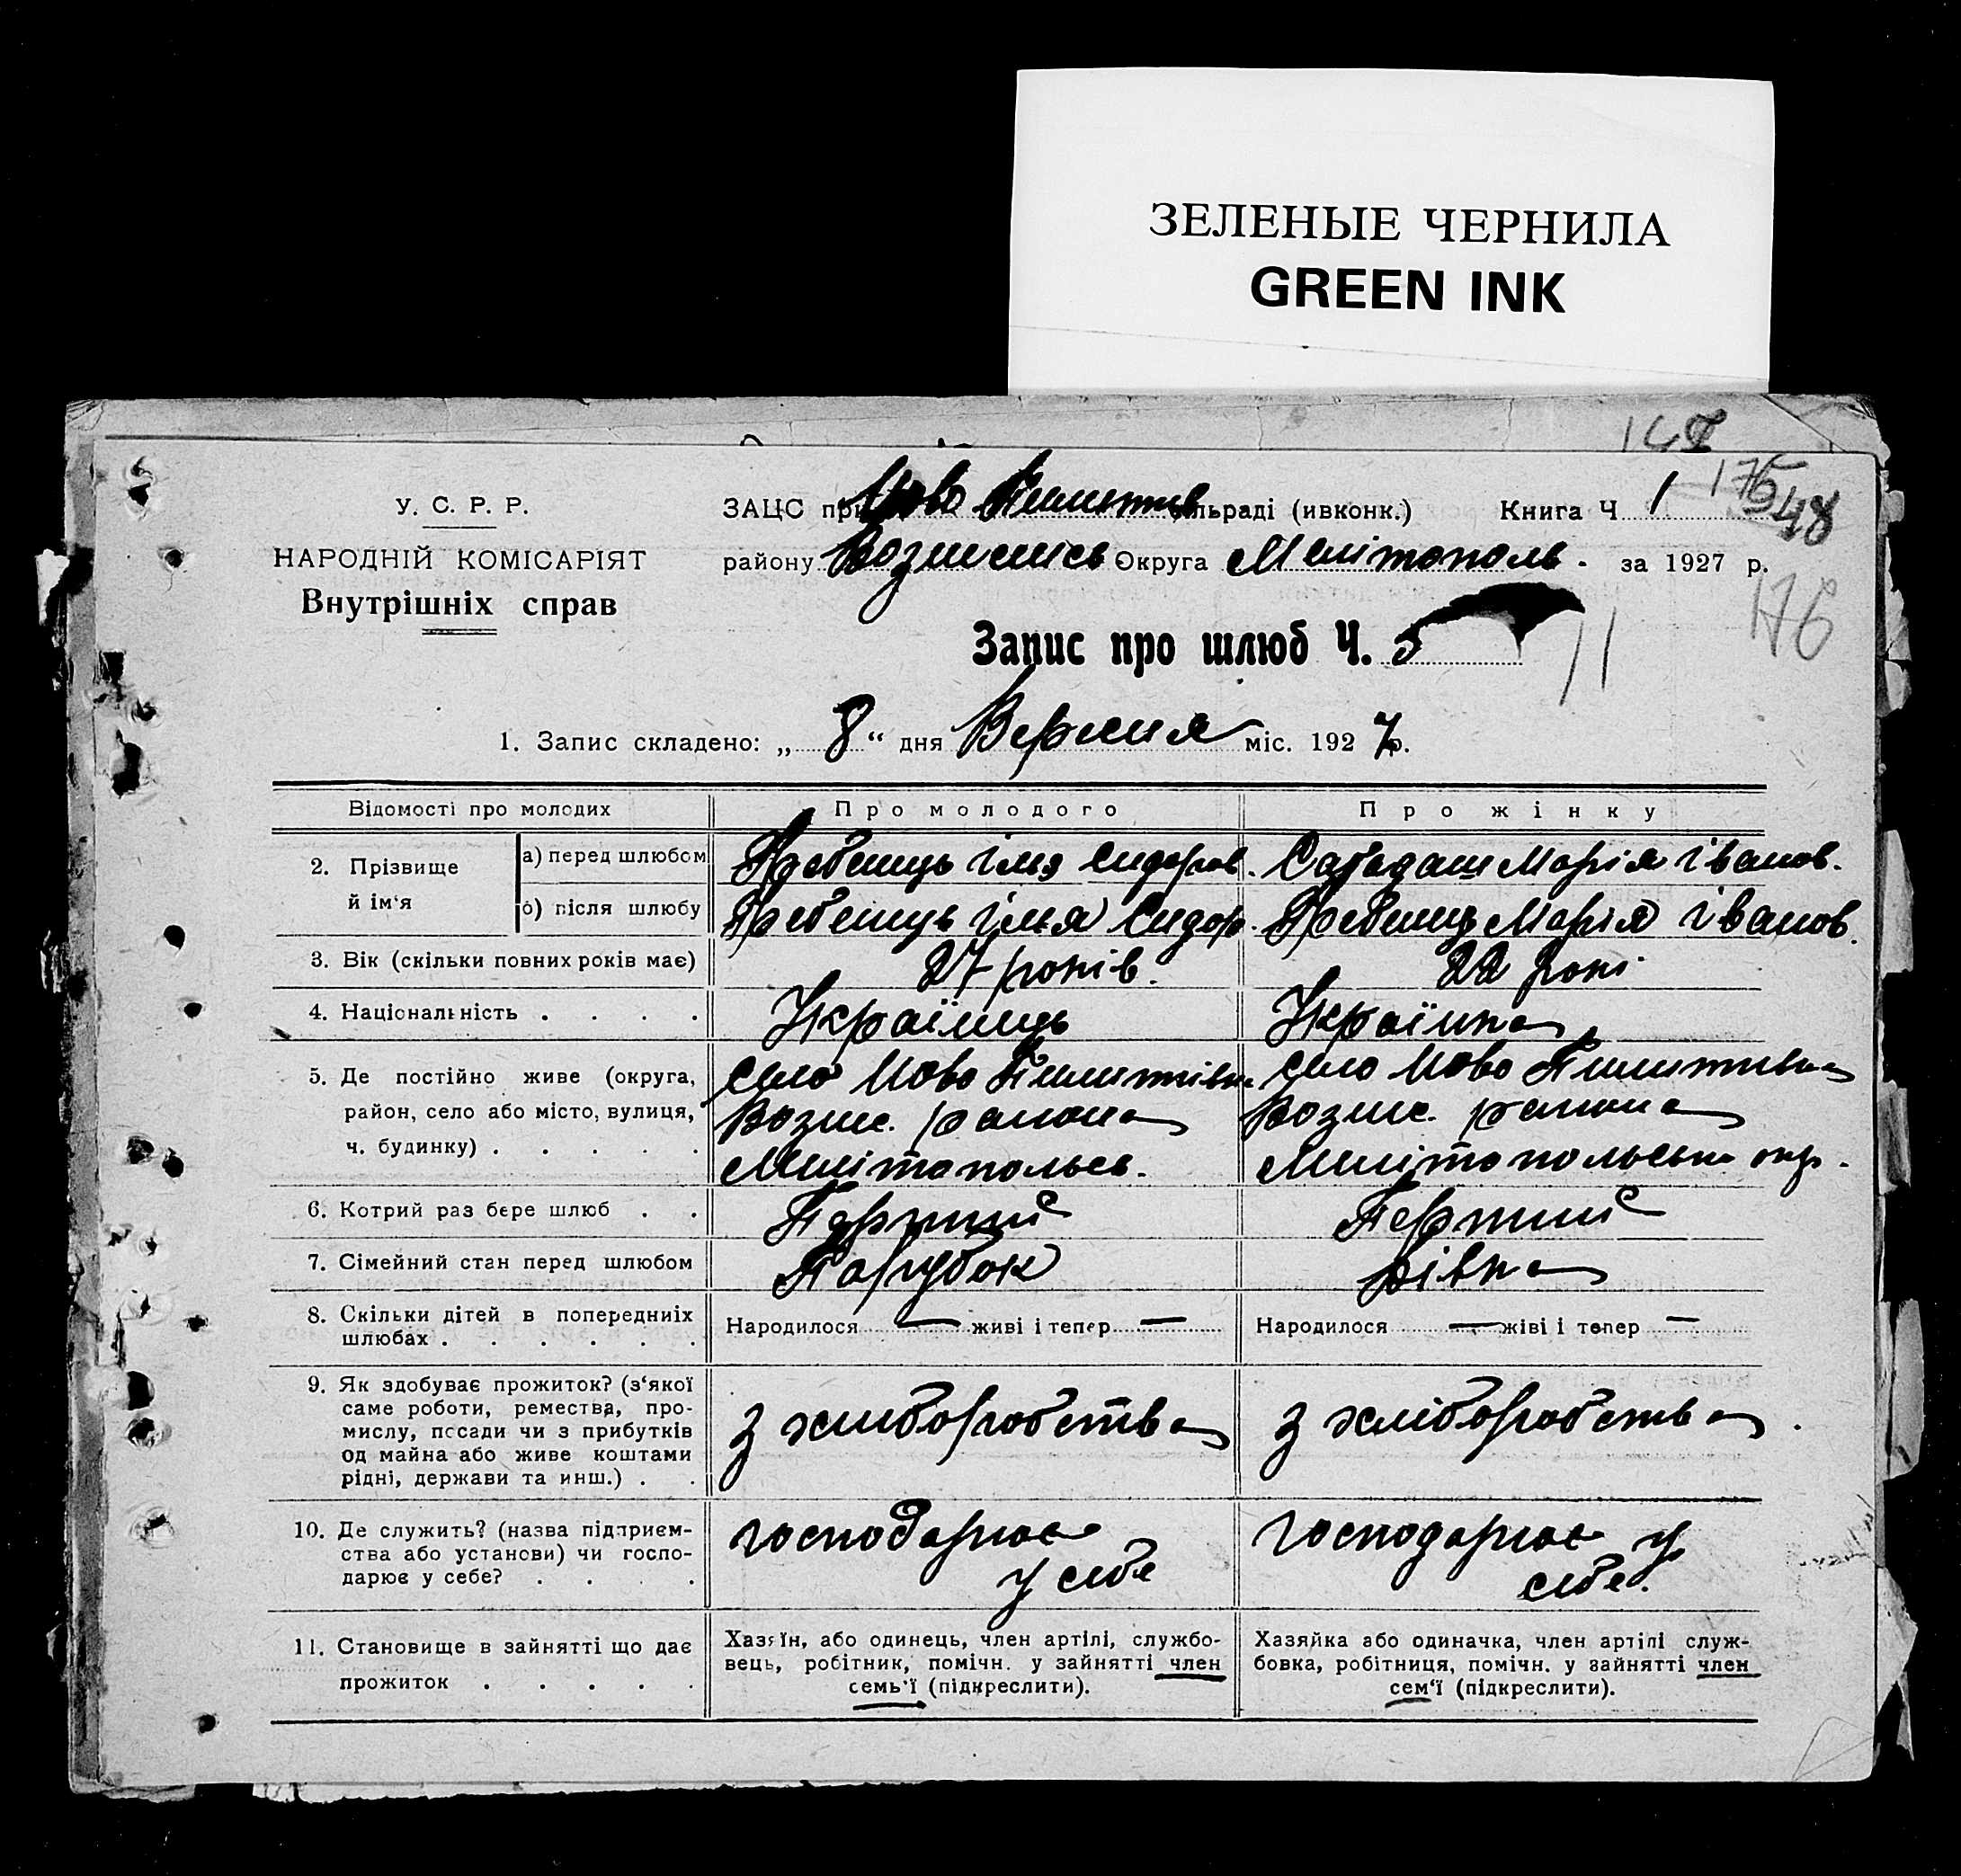 ЗЕЛЕНЫЕ ЧЕРНИЛА
GREEN INK
176
48
У. С. Р. Р.
НАРОДНІЙ КОМІСАРІЯТ
Внутрішніх справ
ЗАЦС при Ново Пилипів льраді (ивконк.) Книга Ч 1
району Вознесенсь Округа Мелітополь. за 1927 р.
Запис про шлюб Ч. 5
1. Запис складено: „ 8 “ дня Вересня міс. 1927 р.
Відомості про молодих Про молодого Про жінку
2. Прізвище й ім‘я
а) перед шлюбом Гребенець Ілья Сидоров. Сабадаш Марія Іванов.
б) після шлюбу Гребенець Ілья Сидор. Гребенец Марія Іванов.
3. Вік (скільки повних років має) 27 років. 22 роки
4. Національність . . . . Українець Українка
5. Де постійно живе (округа,
район, село або місто, вулиця,
ч. будинку) . . . . .
село Ново Пилипівка
Возне. района
Мелітопольсь.
село Ново Пилипивка
Возне. района
Мелітопольськ окр.
6. Котрий раз бере шлюб . . Перший Перший
7. Сімейний стан перед шлюбом Парубок Дівка
8. Скільки дітей в попередниіх
шлюбах . . . . . .
Народилося — живі і тепер —
Народилося — жіві і тепер —
9. Як здобуває прожиток? (з‘якої
саме роботи, ремества, про-
мислу, посади чи з прибутків
од майна або живе коштами
рідні, держави та инш.) . .
з хлиборобства
з хліборобства.
10. Де служить? (назва підприєм-
ства або установи) чи госпо-
дарює у себе? . . . .
господарює
у себе
господарює у
себе.
11. Становище в зайнятті що дає
прожиток . . . . .
Хазяїн, або одинець, член артілі, службо-
вець, робітник, помічн. у зайнятті член
семь‘ї (підкреслити).
Хазяйка або одиначка, член артілі служ-
бовка, робітниця, помічн. у зайнятті член
сем‘ї (підкреслити).